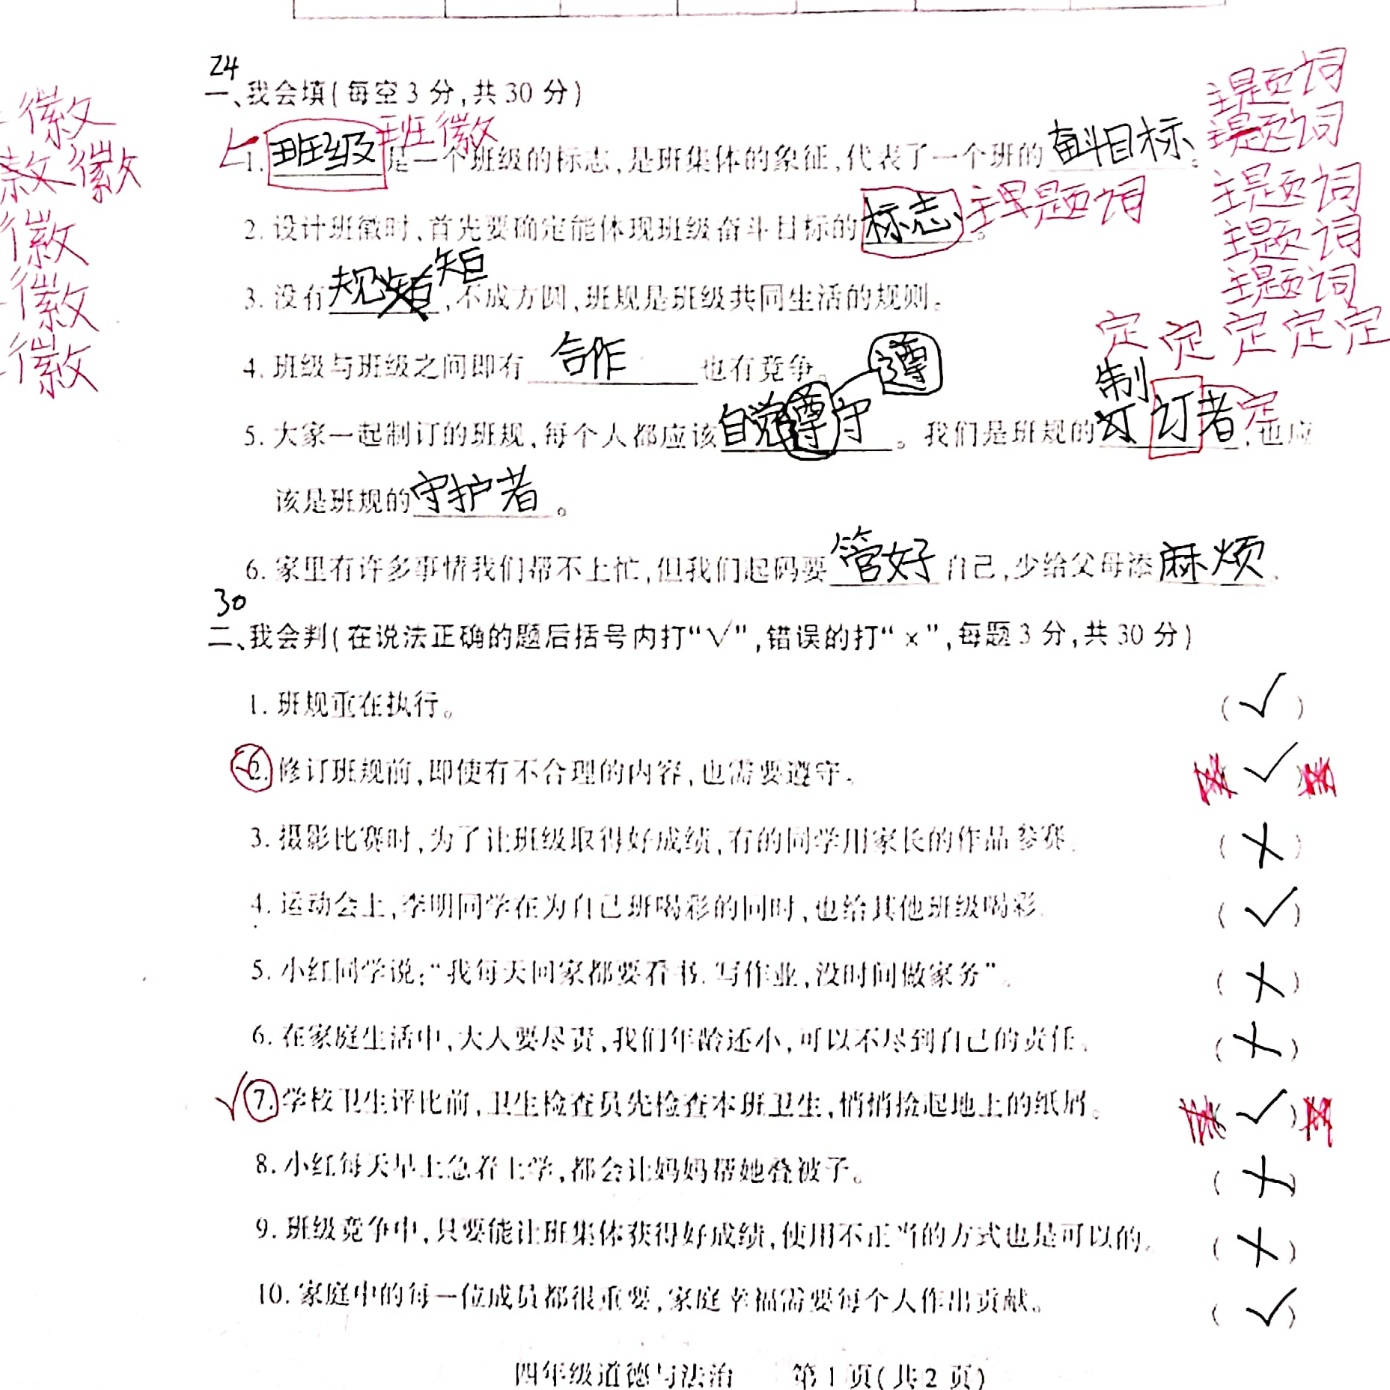 24
一、我会填(每空3分,共30分)
1. 班级 班徽 是一个班级的标志,是班集体的象征,代表了一个班的 奋斗目标。
2. 设计班徽时,首先要确定能体现班级奋斗目标的 标志 主题词。
3. 没有 规矩 ,不成方圆,班规是班级共同生活的规则。
4. 班级与班级之间即有 合作 也有竞争。
5. 大家一起制订的班规,每个人都应该 自觉遵守 。我们是班规的 制订者 定 ,也应
该是班规的 守护者 。
6. 家里有许多事情我们帮不上忙,但我们起码要 管好 自己,少给父母添 麻烦 .
徽
徽
徽
徽
徽
主题词
主题词
主题词
主题词
主题词
定 定 定 定 定
30
二、我会判(在说法正确的题后括号内打“√”,错误的打“×”,每题3分,共30分)
1. 班规重在执行。 (√)
2. 修订班规前,即使有不合理的内容,也需要遵守。 √
3. 摄影比赛时,为了让班级取得好成绩,有的同学用家长的作品参赛. (×)
4. 运动会上,李明同学在为自己班喝彩的同时,也给其他班级喝彩. (√)
5. 小红同学说:“我每天回家都要看书.写作业,没时间做家务”。 (×)
6. 在家庭生活中,大人要尽责,我们年龄还小,可以不尽到自己的责任. (×)
√7. 学校卫生评比前,卫生检查员先检查本班卫生,悄悄捡起地上的纸屑。 (√)
8. 小红每天早上急着上学,都会让妈妈帮她叠被子。 (×)
9. 班级竞争中,只要能让班集体获得好成绩,使用不正当的方式也是可以的. (×)
10. 家庭中的每一位成员都很重要,家庭幸福需要每个人作出贡献。 (√)
四年级道德与法治 第1页(共2页)